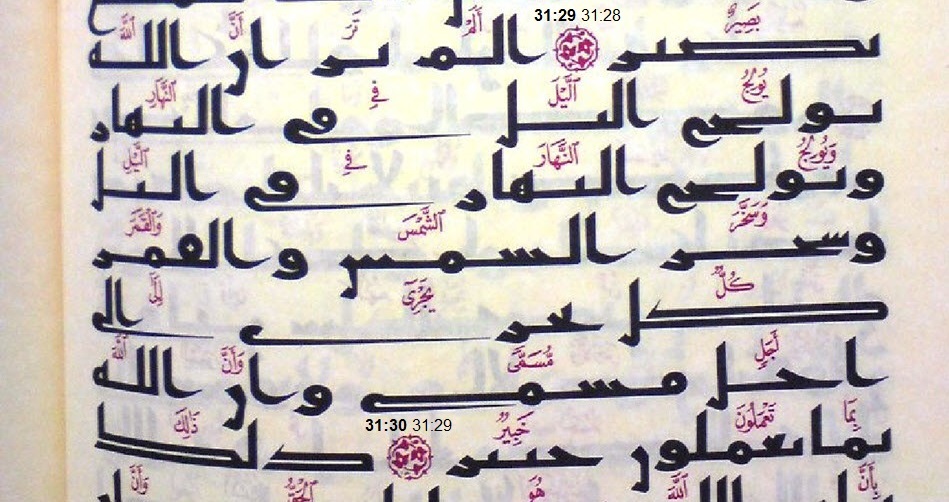 31:29 31:28
بَصِيرٌ أَلَمْ تَرَ أَنَّ ٱللَّهَ
بصير الم تر ان الله
يُولِجُ ٱلَّيْلَ فِي ٱلنَّهَارِ
يولج اليل في النهار
وَيُولِجُ ٱلنَّهَارَ فِي ٱلَّيْلِ
ويولج النهار في اليل
وَسَخَّرَ ٱلشَّمْسَ وَٱلْقَمَرَ
وسخر الشمس والقمر
كُلٌّ يَجْرِيٓ إِلَىٰٓ
كل يجري الى
أَجَلٍ مُّسَمًّى وَأَنَّ ٱللَّهَ
اجل مسمى وان الله
31:30 31:29
بِمَا تَعْمَلُونَ خَبِيرٌ ذَٰلِكَ
بما تعملون خبير ذلك
بِأَنَّ ٱللَّهَ هُوَ ٱلْحَقُّ وَأَنَّ